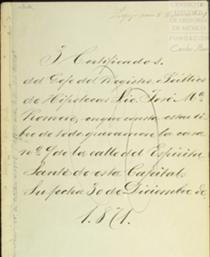 3 Certificados.
del Gefe del Registro Público
de Hipotecas Lic. José Mª
Romero, en que consta estar li
bre de todo gravamen la casa
nº 9 de la calle del Espíritu
Santo de esta Capital.
Su fecha 30 de Diciembre de
1871.